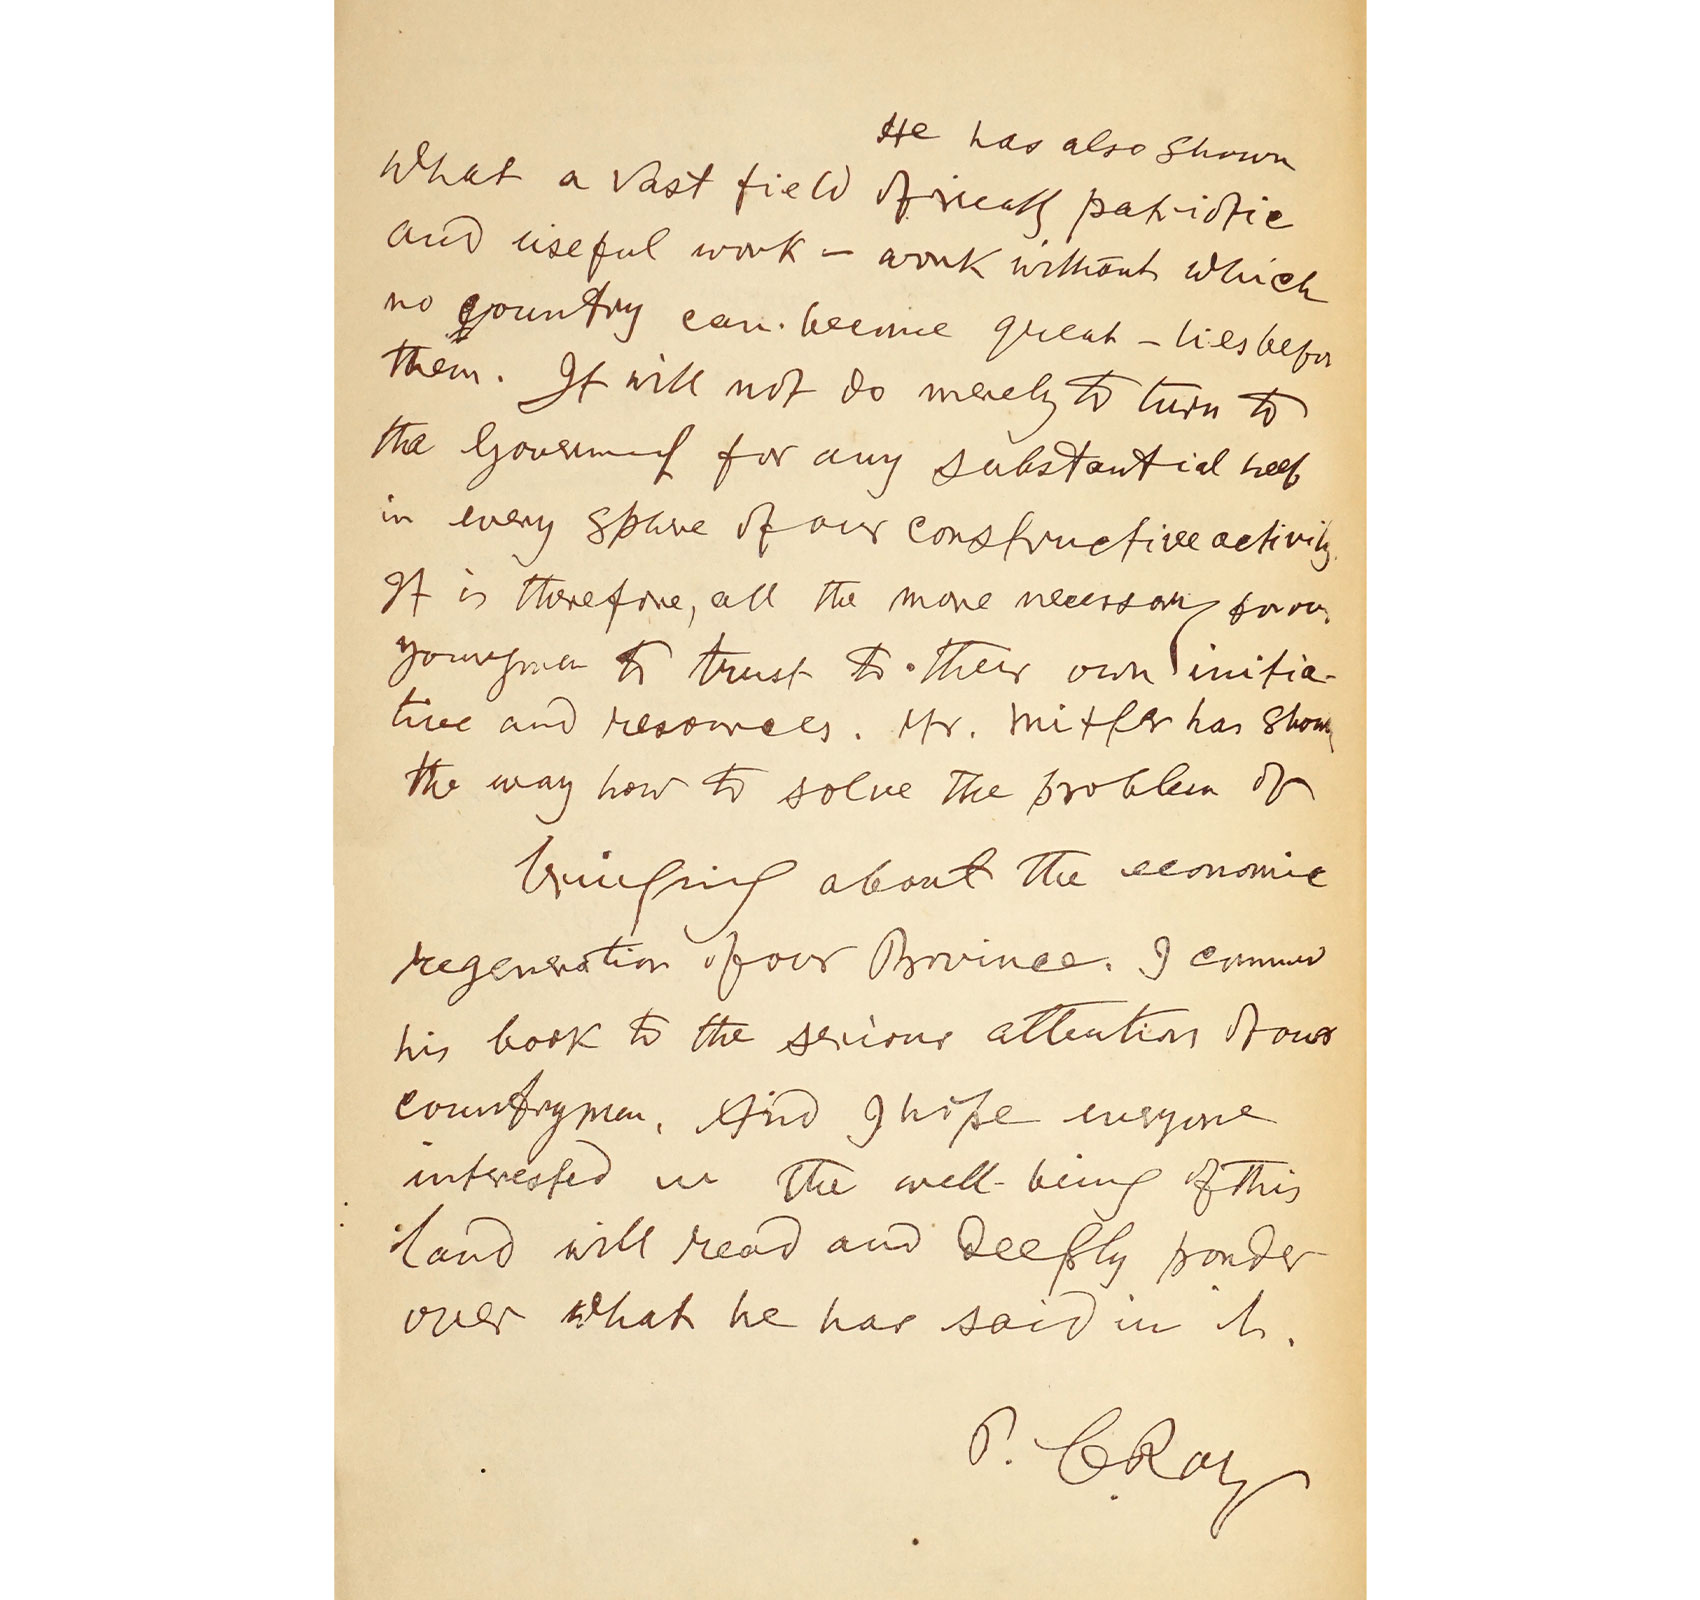 He has also shown
what a vast field of really patriotic
and useful work – work without which
no country can become great – lies before
them. It will not do merely to turn to
the Government for any substantial help
in every sphere of our constructive activity.
It is therefore, all the more necessary for our
youngmen to trust to their own initia-
tive and resources. Mr. Mitter has shown
the way how to solve the problem of
bringing about the economic
regeneration of our Province. I commend
his book to the serious attention of our
countrymen. And I hope everyone
interested in the well-being of this
land will read and deeply ponder
over what he has said in it.
P. C. Ray